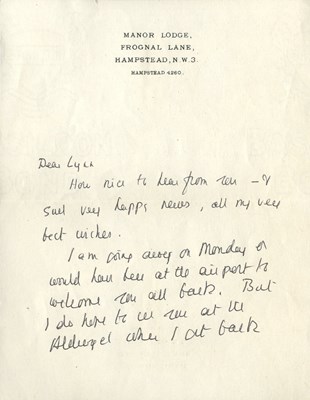 MANOR LODGE,
FROGNAL LANE,
HAMPSTEAD, N.W.3.
HAMPSTEAD 4260.
Dear Lynn
How nice to hear from you – &
such very happy news, all my very
best wishes.
I am going away on Monday or
would have been at the airport to
welcome you all back. But
I do hope to see you at the
Aldwych when I get back